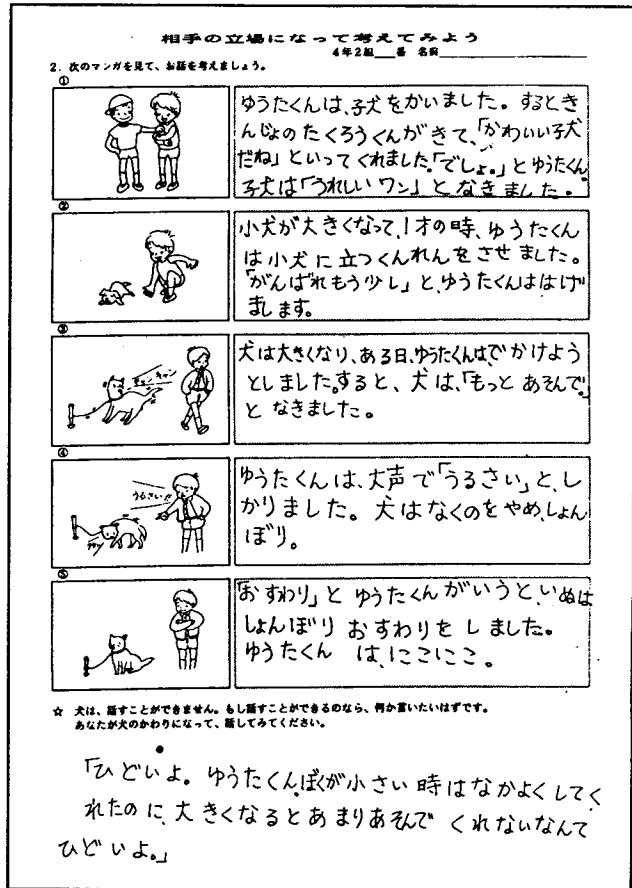 相手の立場になって考えてみよう
4年2組__番 名前
2. 次のマンガを見て、お話を考えましょう。
①
ゆうたくんは、子犬をかいました。するとき
んじょのたくろうくんがきて、「かわいい子犬
だね」といってくれました。「でしょ。」とゆうたくん
子犬は「うれしいワン」となきました。
②
小犬が大きくなって、1才の時、ゆうたくん
は小犬に立つくんれんをさせました。
「がんばれもう少し」と、ゆうたくんははげ
まします。
③
キャンキャン
犬は大きくなり、ある日、ゆうたくんは、でかけよう
としました。すると、犬は、「もっとあそんで。」
となきました。
④
うるさい!!
ゆうたくんは、大声で「うるさい」と、し
かりました。犬はなくのをやめ、しょん
ぼり。
⑤
「おすわり」とゆうたくんがいうと、いぬは
しょんぼりおすわりをしました。
ゆうたくん は、にこにこ。
☆ 犬は、話すことができません。もし話すことができるのなら、何か言いたいはずです。
あなたが犬のかわりになって、話してみてください。
「ひどいよ。ゆうたくん。ぼくが小さい時はなかよくしてく
れたのに、大きくなるとあまりあそんでくれないなんて
ひどいよ。」